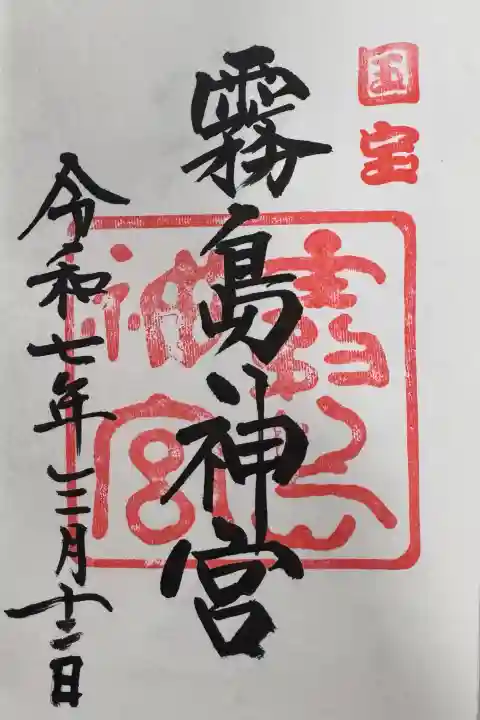 国宝
霧島神宮
霧島神宮
令和七年三月十二日